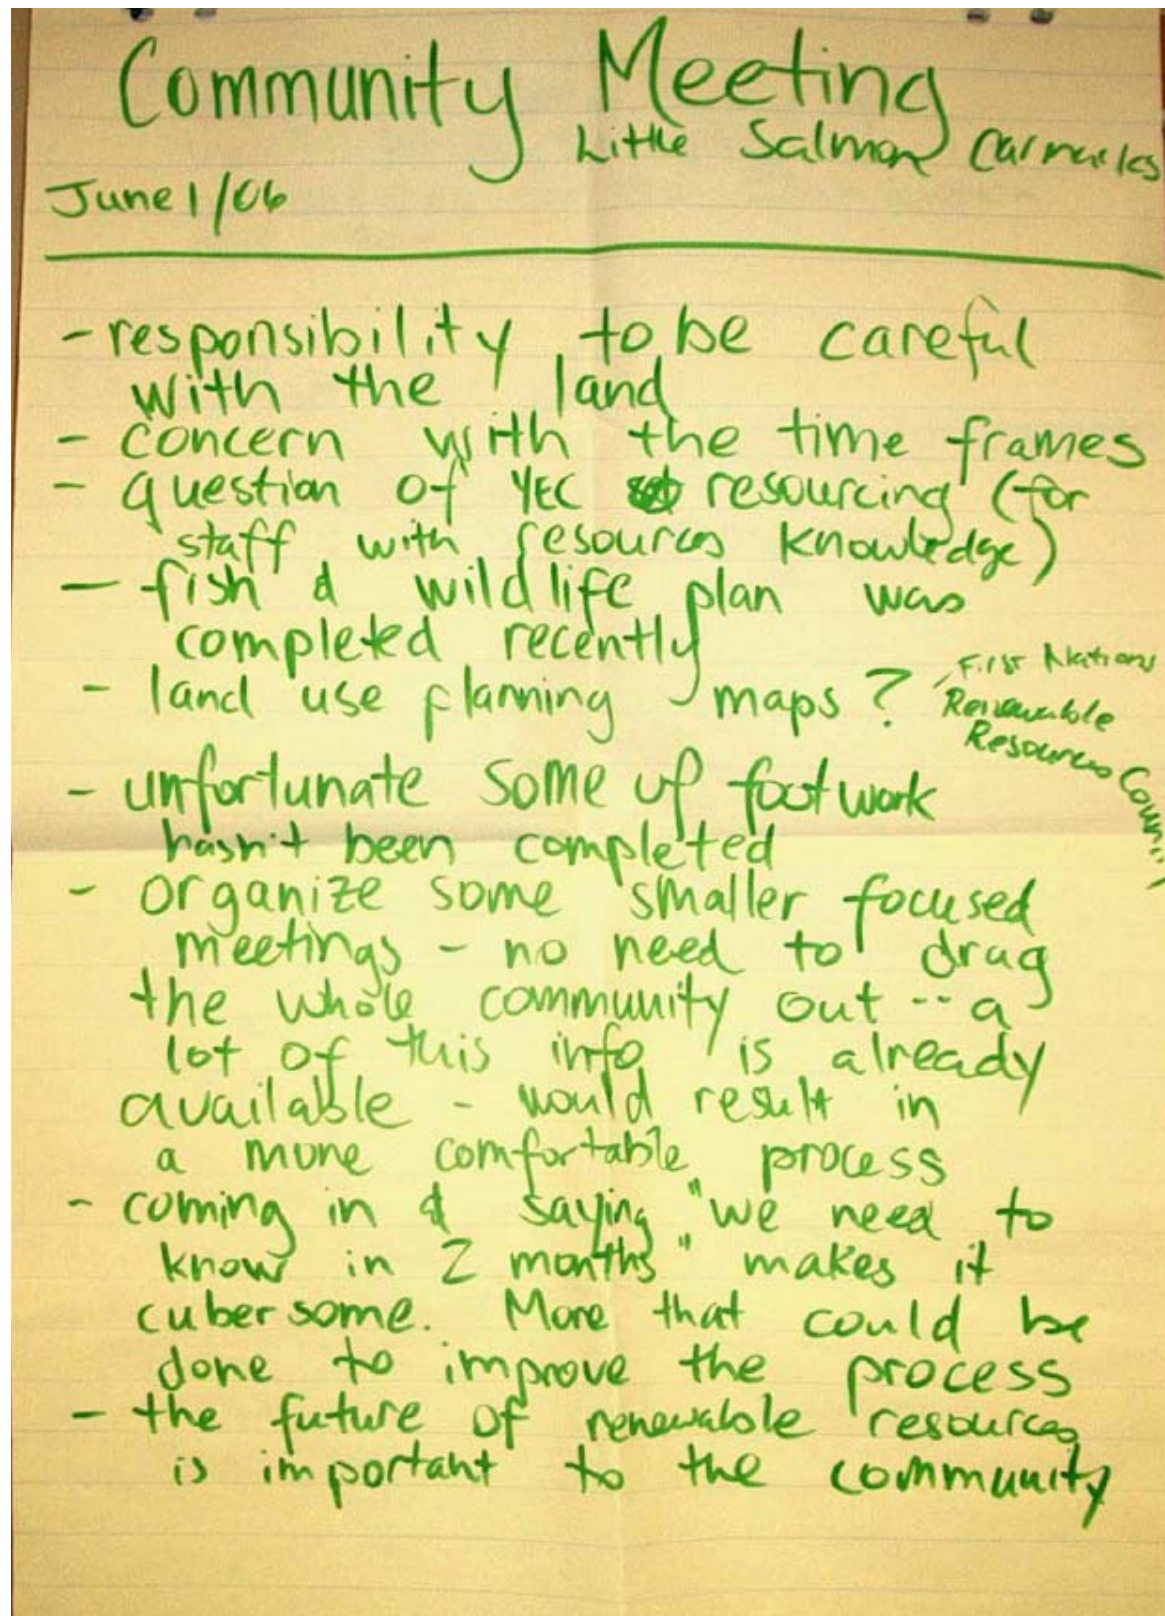 Community Meeting
Little Salmon Carmacks
June 1/06
- responsibility to be careful
with the land
- concern with the time frames
- question of YEC resourcing (for
staff with resources knowledge)
- fish & wildlife plan was
completed recently
- land use planning maps?
First Nations
Renewable
Resources Council
- unfortunate some of footwork
hasn't been completed
- organize some smaller focused
meetings - no need to drag
the whole community out -- a
lot of this info is already
available - would result in
a more comfortable process
- coming in & saying "we need to
know in 2 months" makes it
cubersome. More that could be
done to improve the process
- the future of renewable resources
is important to the community